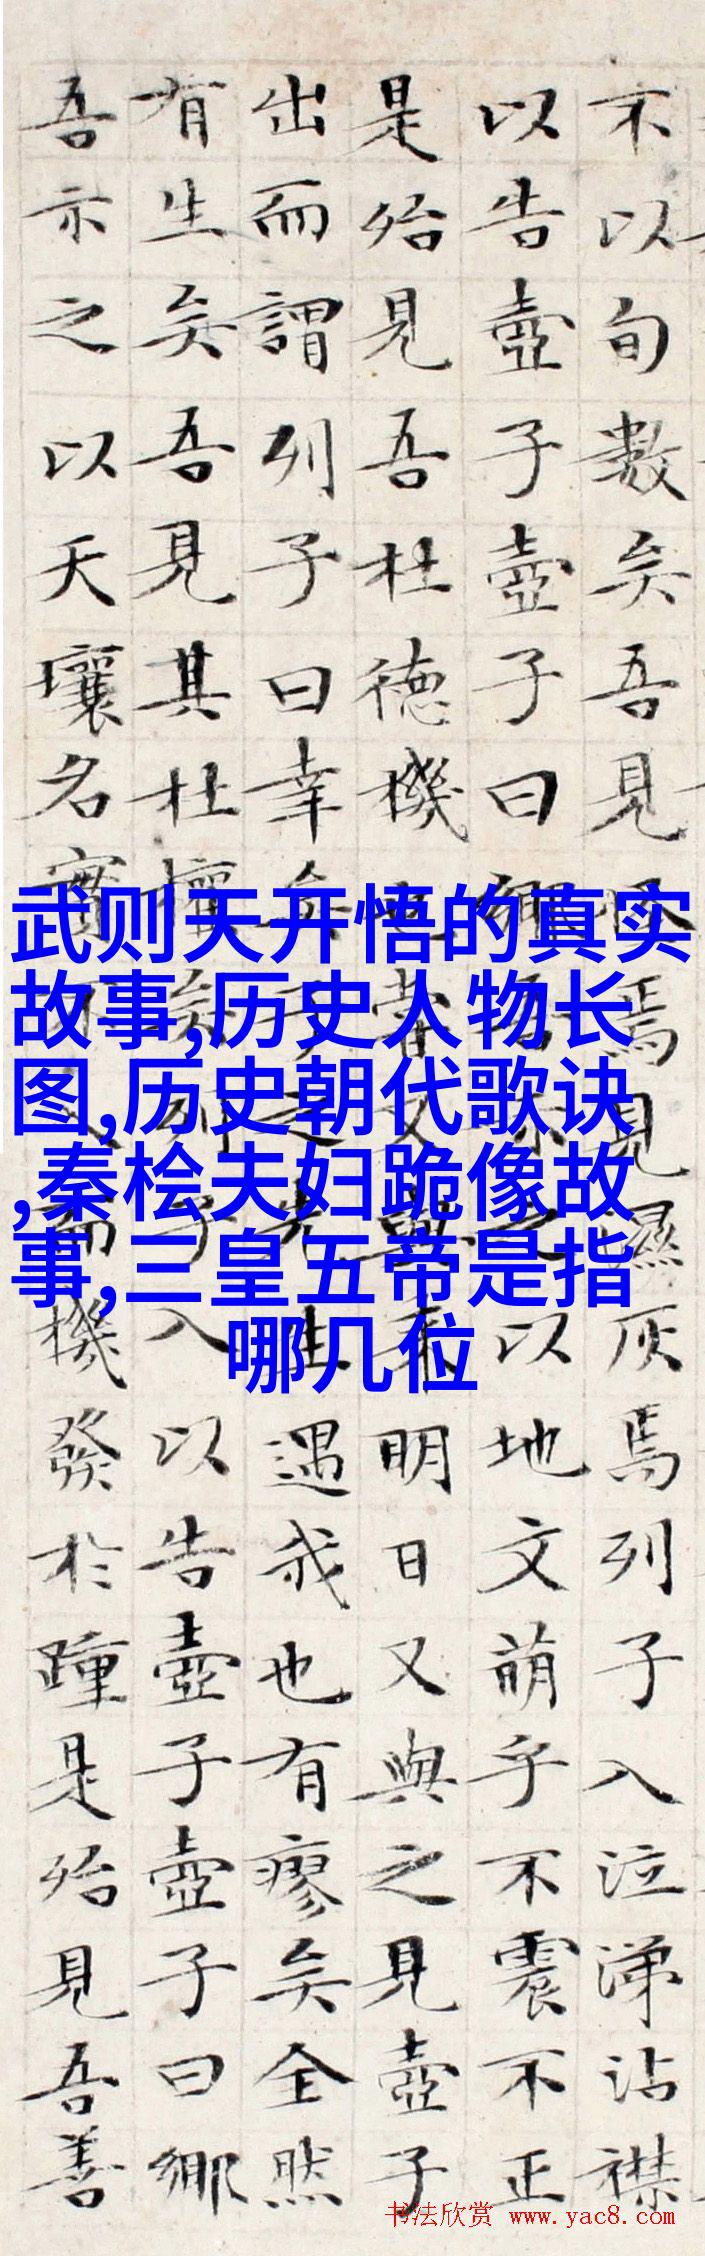 不以旬數矣吾見怪焉見濕灰焉列子入泣涕沾襟
以告壺子壺子曰鄉吾示之以地文萌乎不震不正
是殆見吾杜德機也嘗又與來明日又與之見壺子
出而謂列子曰幸矣子之先生遇我也有瘳矣全然
有生矣吾見其杜權矣列子入以告壺子壺子曰鄉
吾示之以天壤名實不入而機發於踵是殆見吾善
武则天开悟的真实
故事,历史人物长
图,历史朝代歌诀
,秦桧夫妇跪像故
事,三皇五帝是指
哪几位
书法欣赏 www.yac8.com